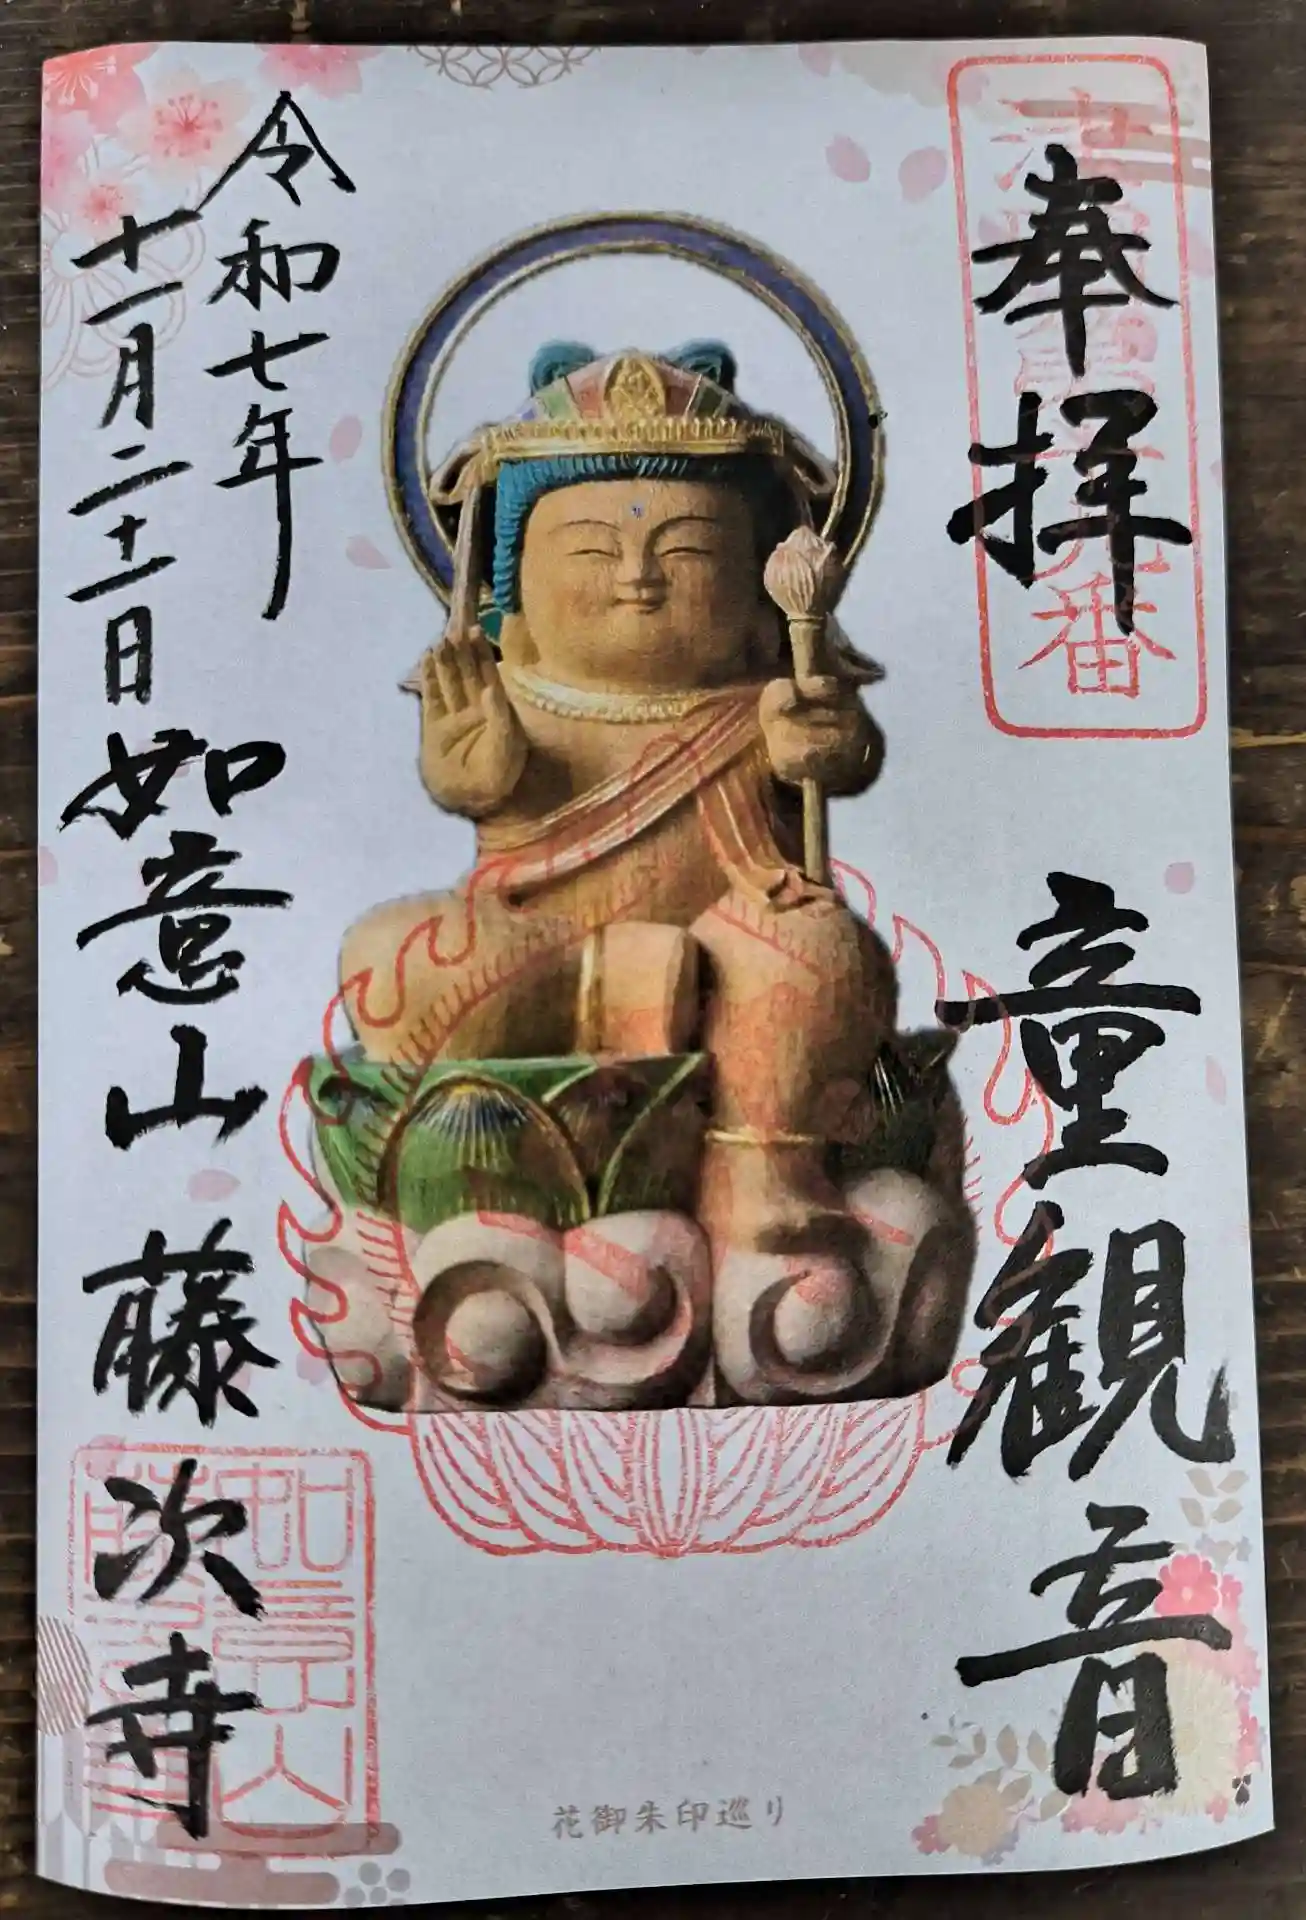 奉拝
童観音
令和七年
十一月二十一日
如意山 藤次寺
如意山
花御朱印巡り